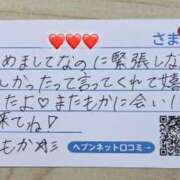 さま
めましてなのに緊張しな
しかったって言ってくれて嬉
たよ♡またもかに会い
来てね♪
もか
ヘブンネット口コミ→